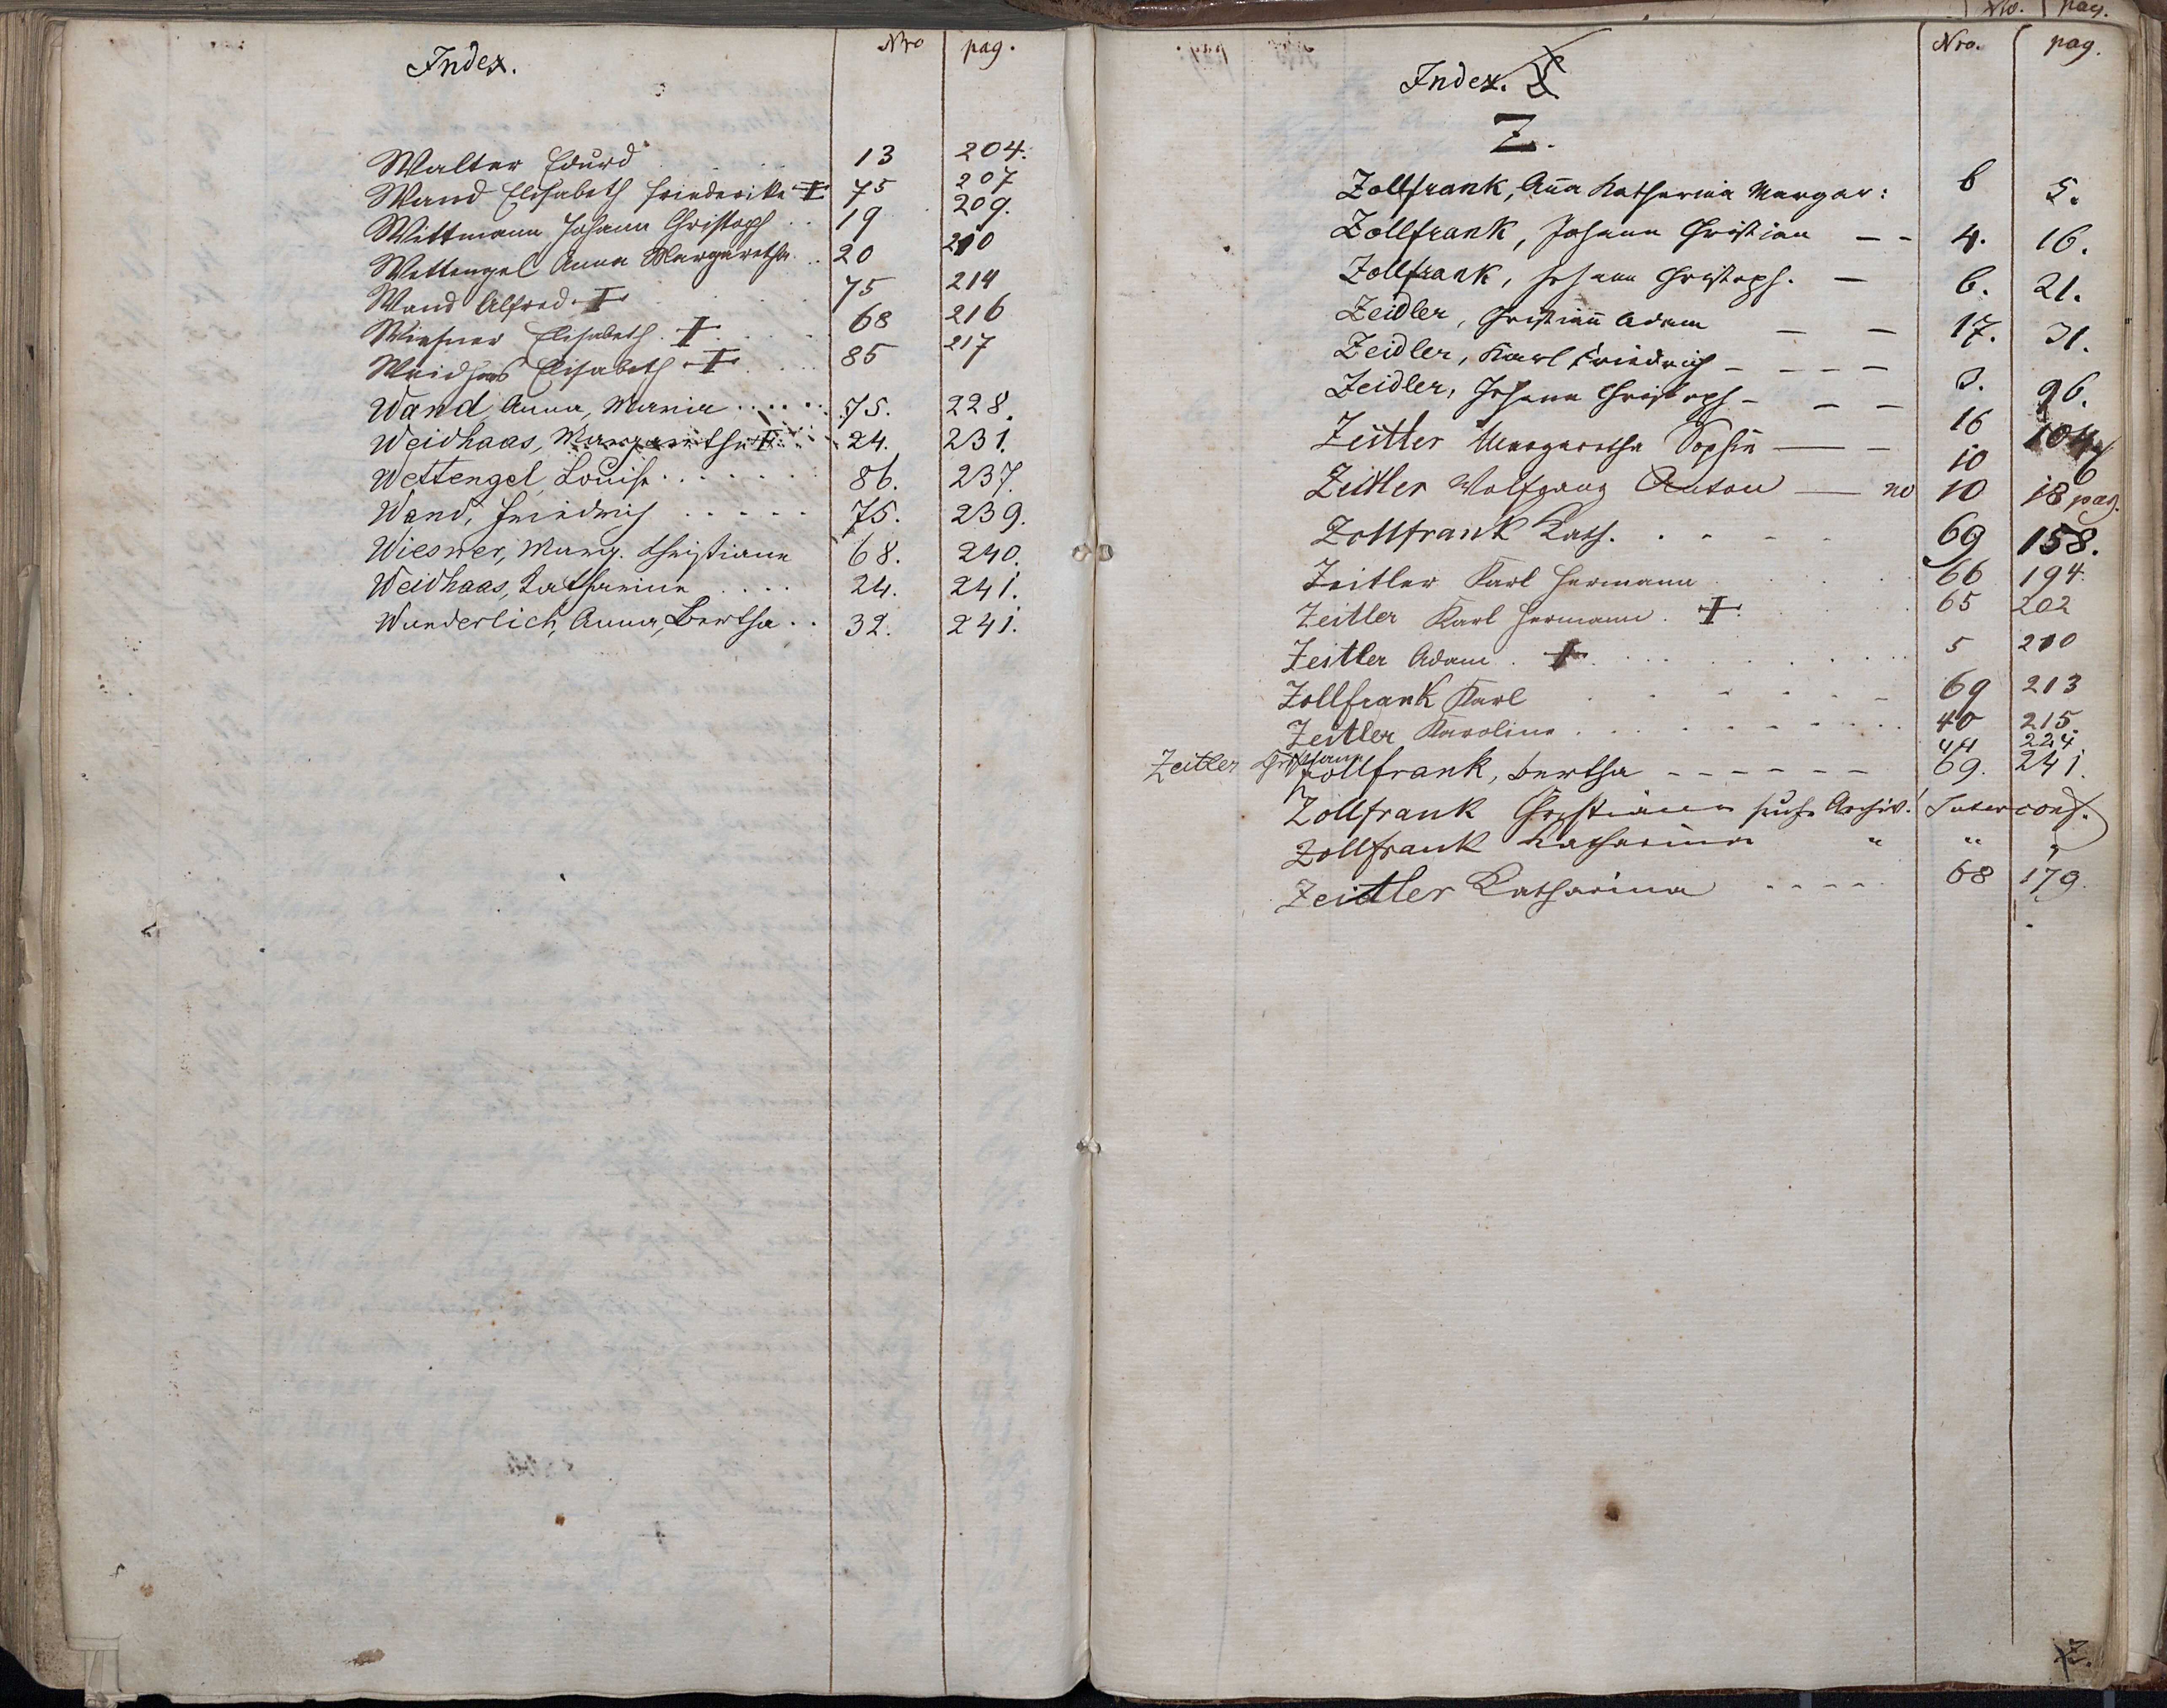 Index. Nro pag.
Walter Eduard 13 204.
Wand Elisabeth Friederike † 75 207
Wittmann Johann Christoph . . 19 209.
Wettengel Anna Margaretha . . 20 210
Wand Alfred † 75 214
Wiesner Elisabeth. † 68 216
Weidhaas Elisabeth † 85 217
Wand, Anna, Maria . . . . . . 75. 228.
Weidhaas, Margaretha † 24. 231.
Wettengel, Louise . . . . . . 86. 237.
Wand, Friedrich . . . . . 75. 239.
Wiesner, Marg. Christiane 68. 240.
Weidhaas, Katharina . . . . 24. 241.
Wunderlich, Anna, Bertha . . 32. 241.
Nro. pag.
Index. Nro. pag.
Z.
Zollfrank, Aña Katharina Margar: 6 5.
Zollfrank, Johann Christian — – 4. 16.
Zollfrank, Johann Christoph. — 6. 21.
Zeidler, Christian̄ Adam — — 17. 31.
Zeidler, Karl Friedrich – – – — 3. 96.
Zeidler, Johann Christoph – — — 16 104
Zeitler Margaretha Sophie —— — 10 6
Zeitler Wolfgang Anton —— no 10 18 pag.
Zollfrank Kath. . - - - - 69 158.
Zeitler Karl Hermann . . . . 66 194.
Zeitler Karl Hermann . † . . 65 202
Zeitler Adam . † . . . . . . . 5 210
Zollfrank Karl . - - - - - 69 213
Zeitler Karoline . . . . . . . . 40 215.
Zeitler Christiana 44 224.
Zollfrank, Bertha - - - - - - 69. 241.
Zollfrank Christiana siehe Archiv.
Zollfrank Katharina " " "
Zeitler Katharina - - - - 68 179.
Z.